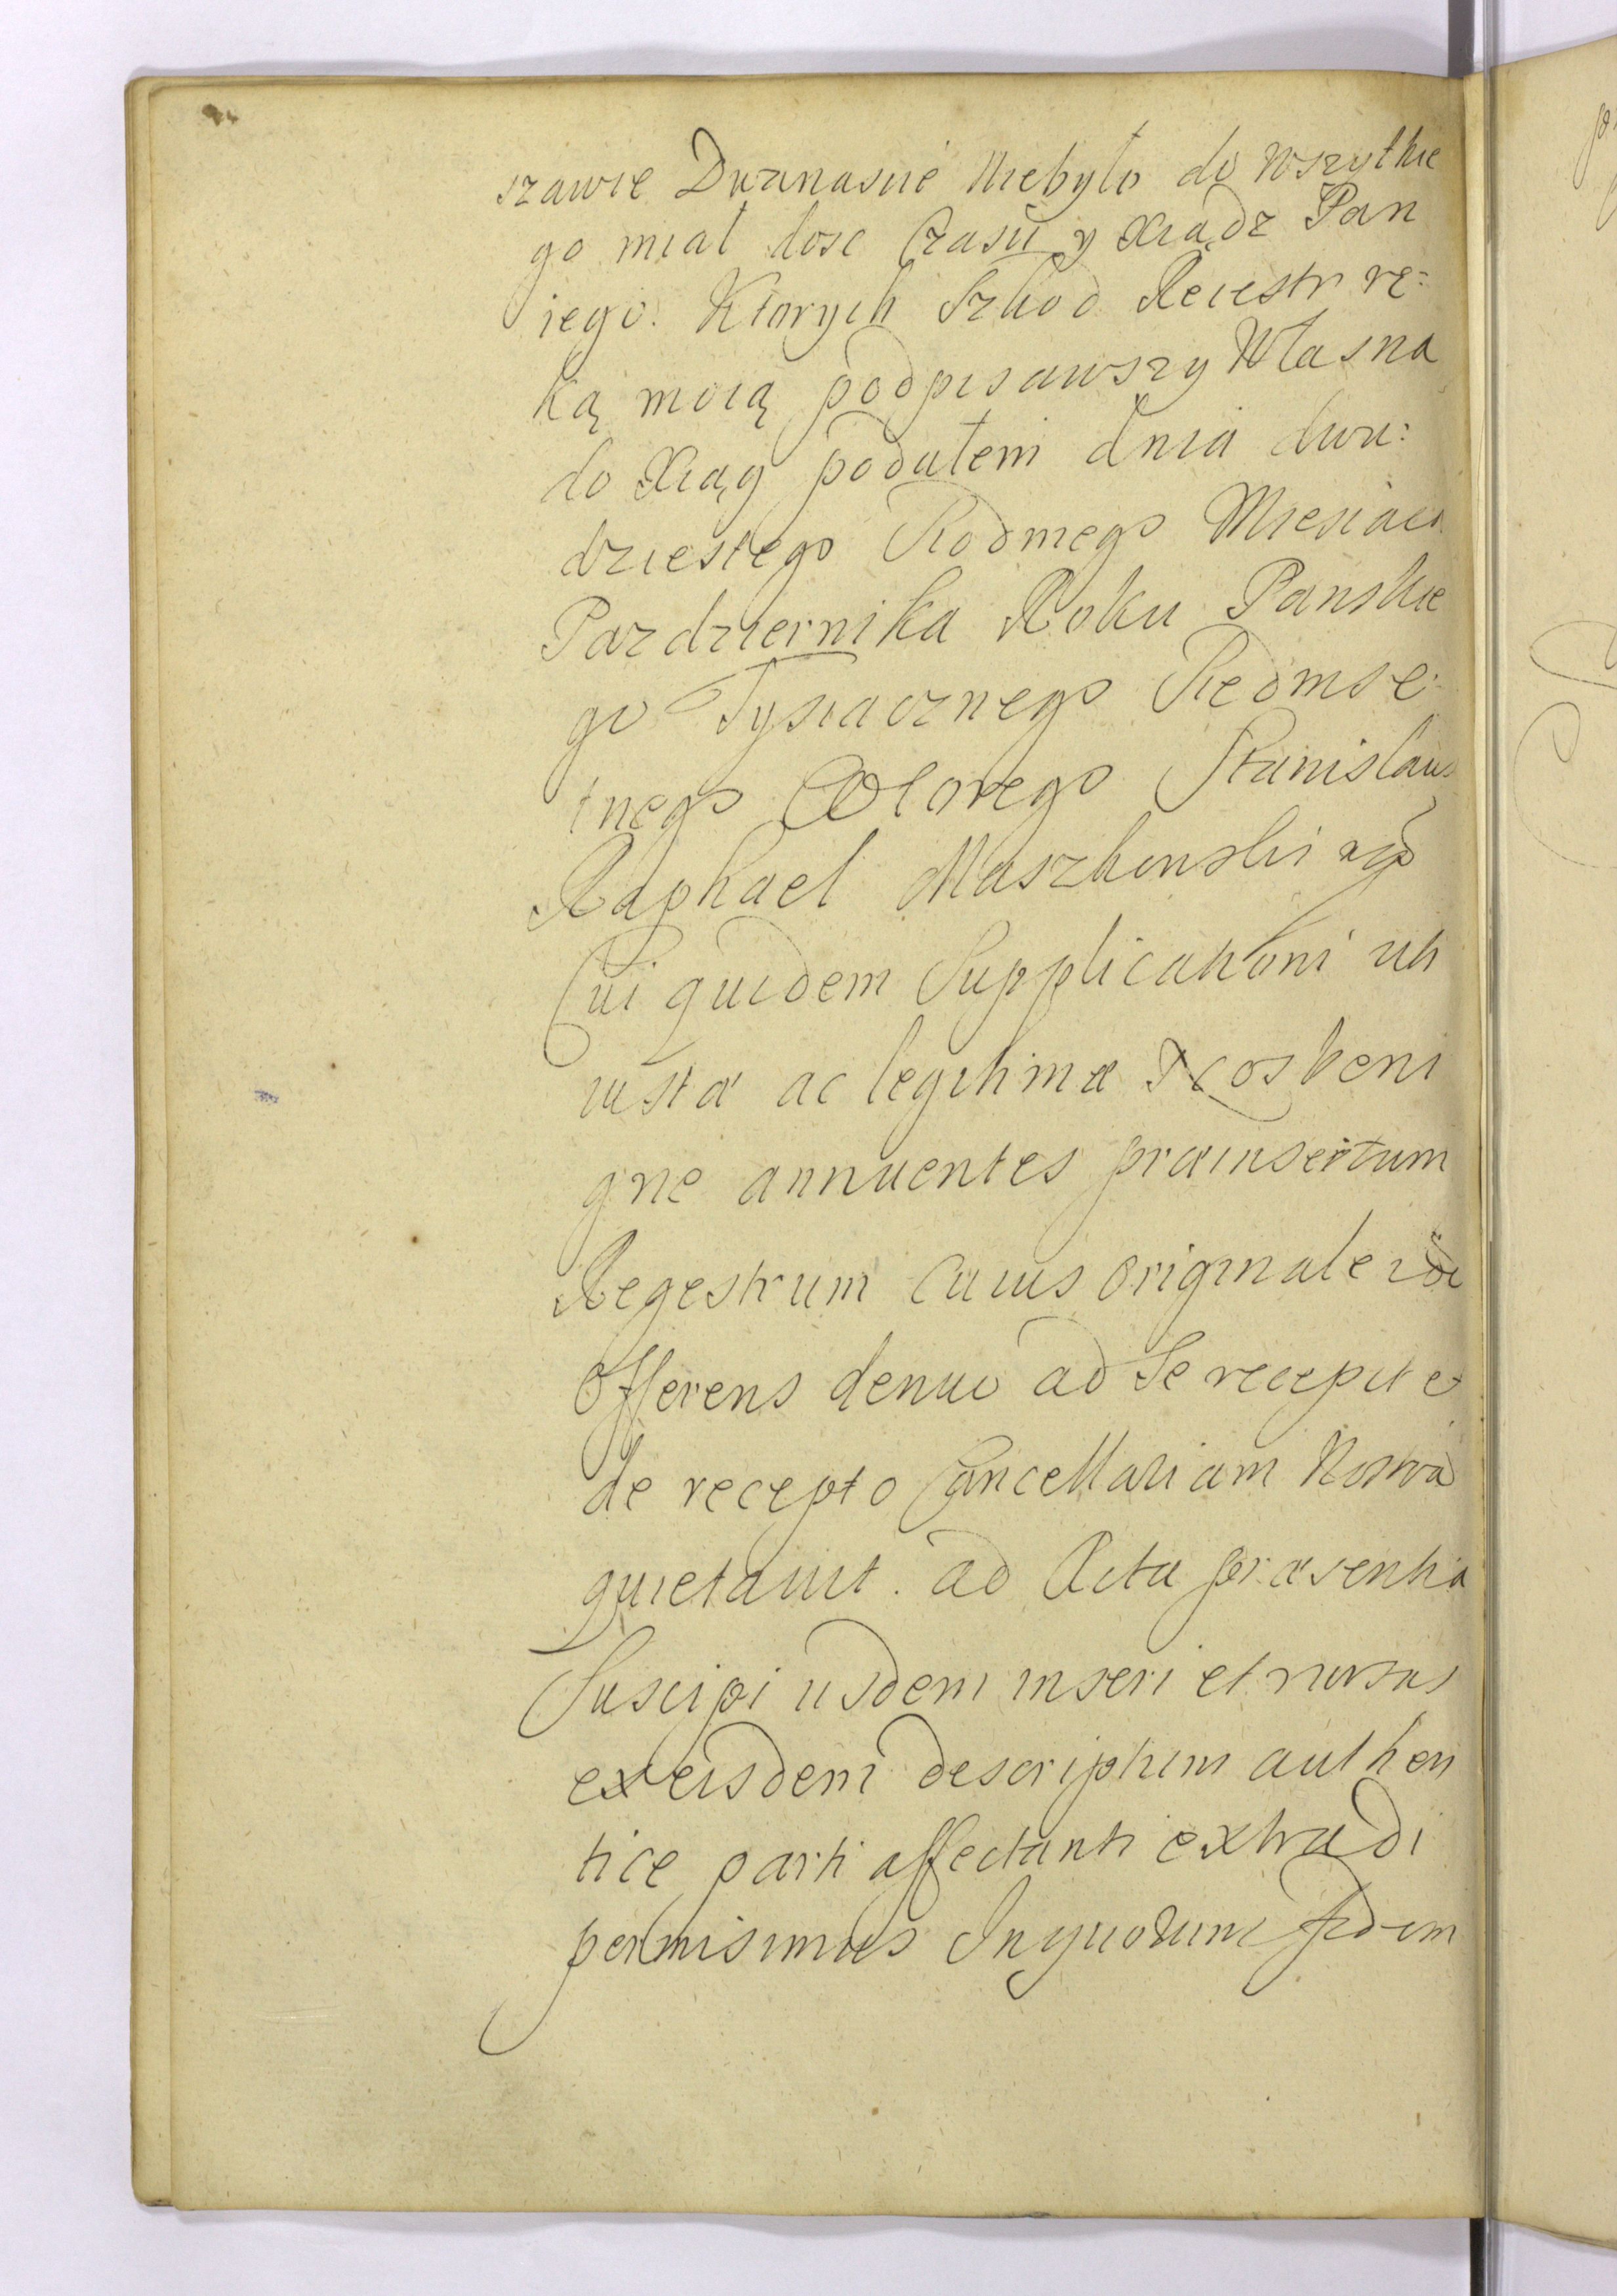 szawie Dwanascie Niebyło do Wszytkie
go miał dosc Czasu y Xiądz Pan
iego. Ktorych Szkod Reiestr rę:
ką moią podpisawszy Własna
do Xiąg podałem dnia dwu:
dziestego Siodmego Miesiaca
Pazdziernika Roku Panskie
go Tysiacznego Siedmse:
tnego Wtorego Stanislaus
Raphael Maszkowski
Cui quidem Supplicationi uti
iusta ac legitimæ Nos beni
gne annuentes præinsertum
Regestrum Cuius Originale idē
Offerens denuo ad Se recepit et
de recepto Cancellariam Nostrā
quietavit. ad Acta præsentia
Suscipi iisdem inseri et rursus
ex eisdem descriptum authen
tice parti affectanti extradi
permisimus In quorum fidem